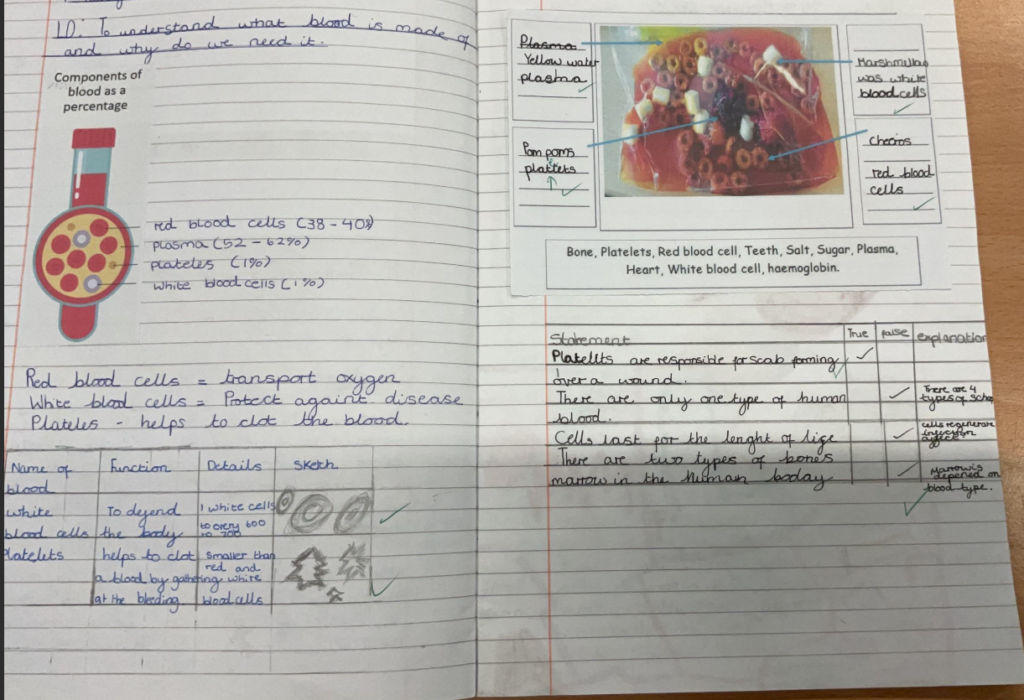 LO: To understand what blood is made of
and why do we need it.
Components of
blood as a
percentage
red blood cells (38 - 40%)
plasma (52 - 62%)
plateles (1%)
white blood cells (1%)
Red blood cells = transport oxygen
White blood cells = Protect againt disease
Plateles - helps to clot the blood.
Name of
blood
Function
Details
Sketch
white
blood cells
To defend
the body
1 white cells
to every 600
to 700
Platelets
helps to clot
a blood by gathering
at the bleeding
Smaller than
red and
white
blood cells
Plasma
Yellow water
plasma
Pom poms
platlets
Marshmellow
was white
blood cells
Cheerios
red blood
cells
Bone, Platelets, Red blood cell, Teeth, Salt, Sugar, Plasma,
Heart, White blood cell, haemoglobin.
Statement
True
False
explanation
Platelets are responsible for scab forming
over a wound.
There are only one type of human
blood.
There are 4
types of
Cells last for the lenght of life
cells regenerate
There are two types of bones
marrow in the human boday
Marrow is
depened on
blood type.